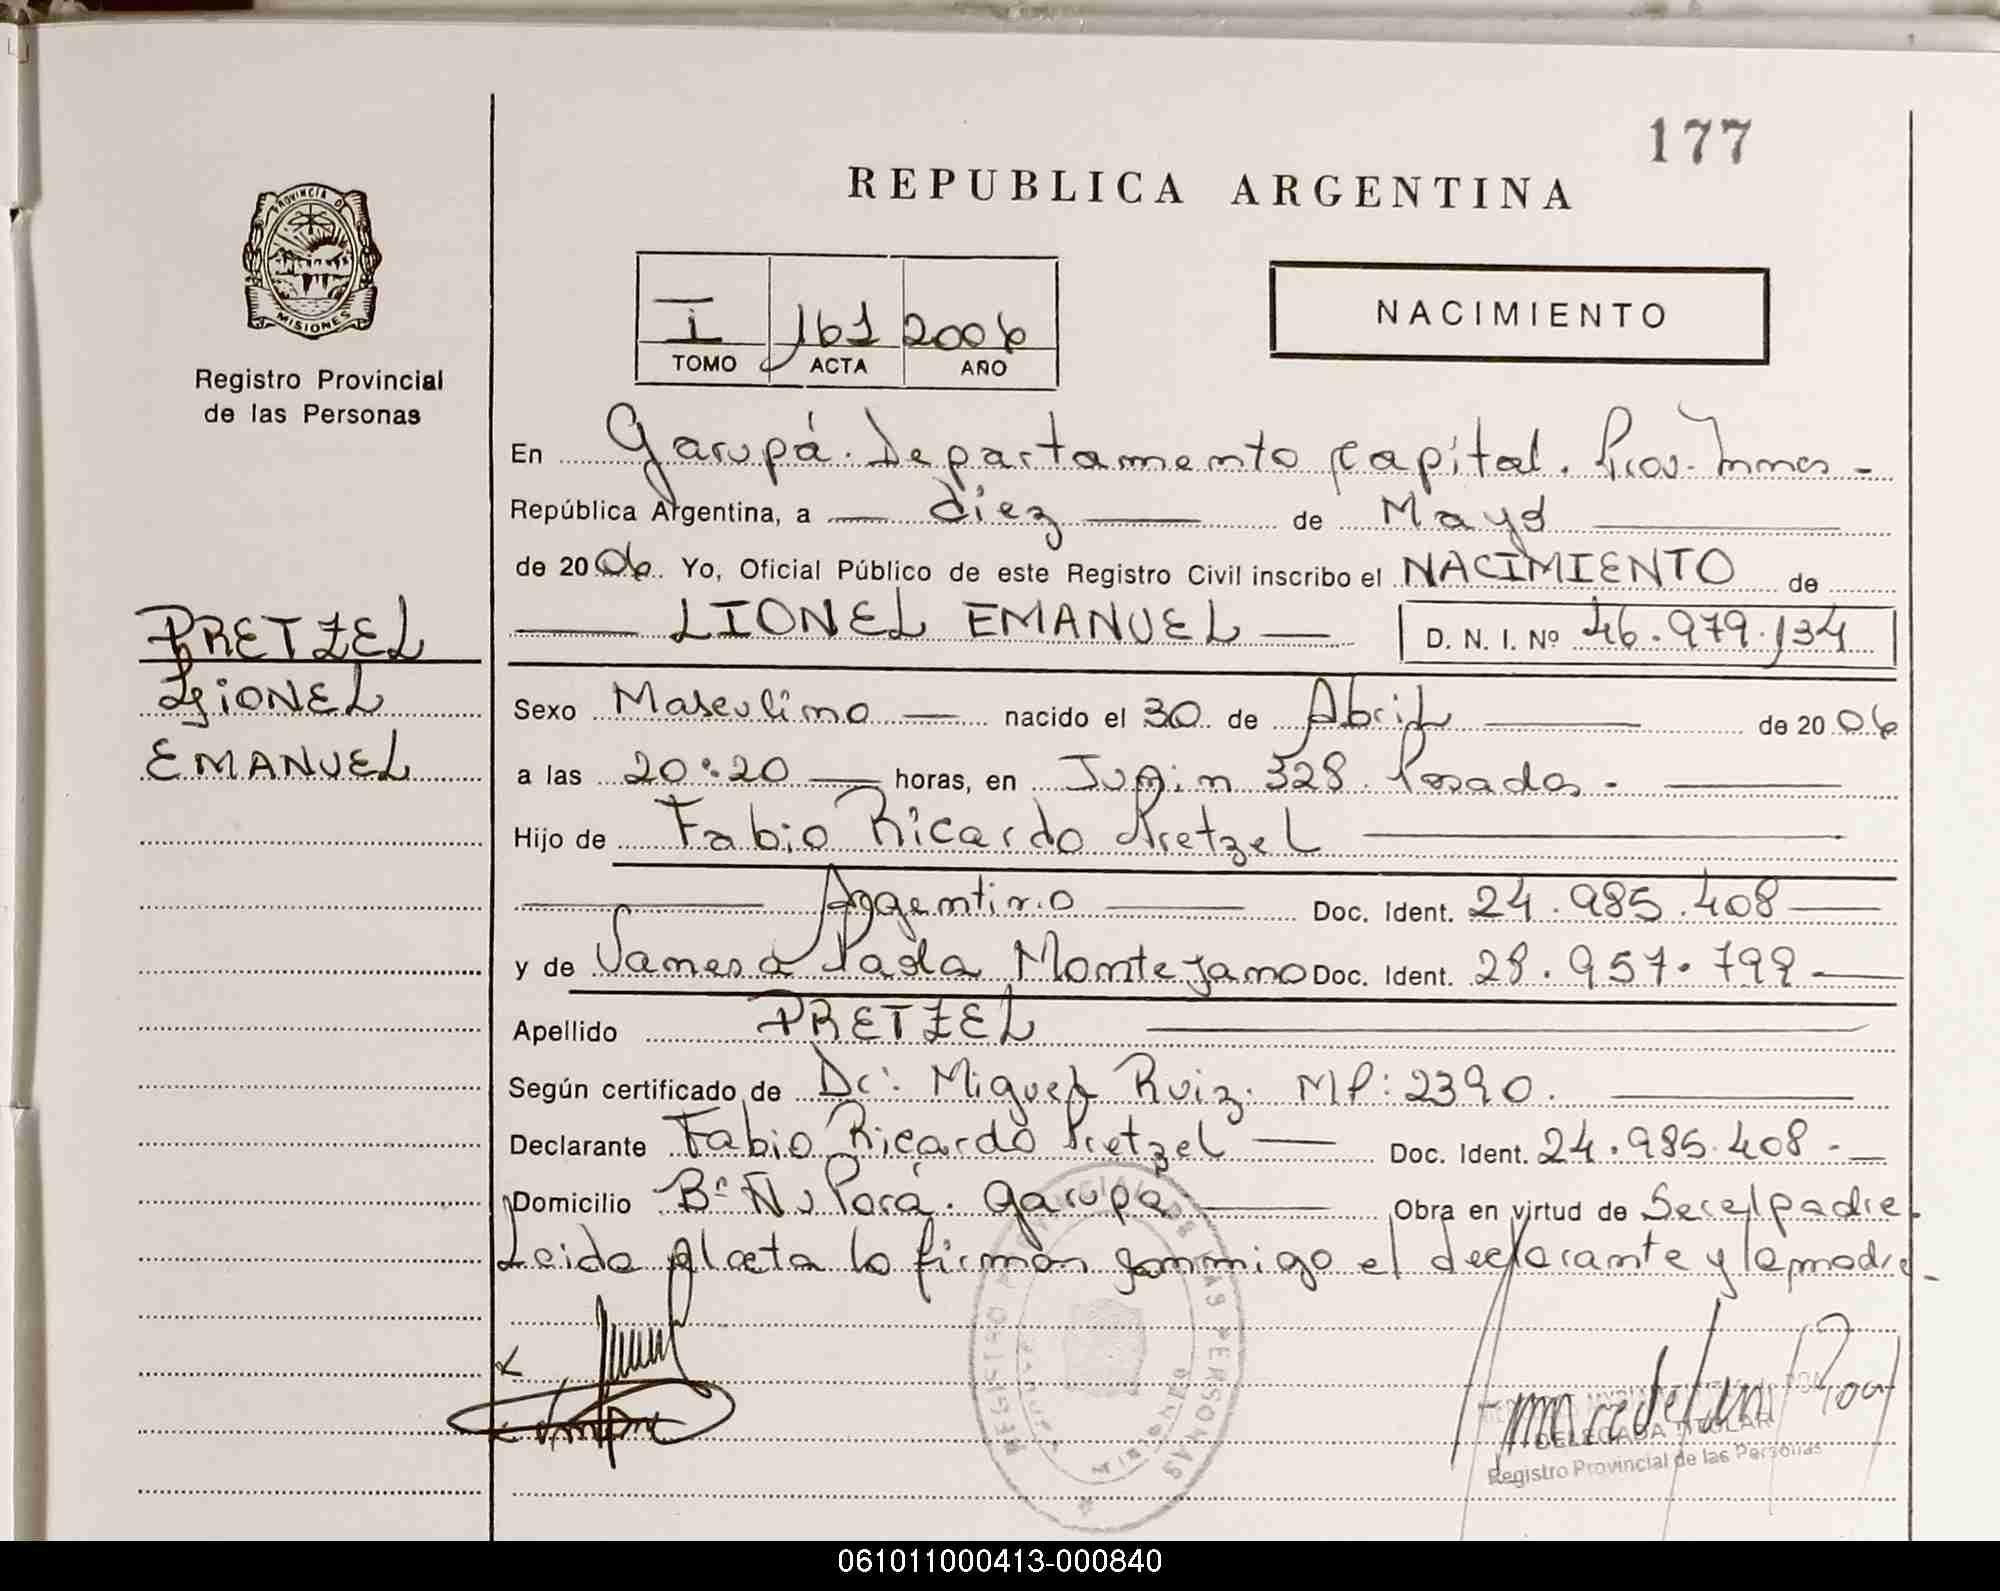 177
REPUBLICA ARGENTINA
PROVINCIA DE
MISIONES
Registro Provincial
de las Personas
I 161 2006
TOMO ACTA AÑO
NACIMIENTO
En Garupá. Departamento Capital. Prov. Mnes -
República Argentina, a diez de Mayo
de 2006. Yo, Oficial Público de este Registro Civil inscribo el NACIMIENTO de
PRETZEL
LIONEL
EMANUEL
LIONEL EMANUEL D. N. I. Nº 46.979.134
Sexo Masculino nacido el 30 de Abril de 2006
a las 20:20 horas, en Junin 328 Posadas.
Hijo de Fabio Ricardo Pretzel
Argentino Doc. Ident. 24.985.408
y de Vanesa Paola Montejano Doc. Ident. 28.957.799
Apellido PRETZEL
Según certificado de Dr: Miguel Ruiz. MP: 2390.
Declarante Fabio Ricardo Pretzel Doc. Ident. 24.985.408.
Domicilio Bº Ñu Porá. Garupá Obra en virtud de Ser el padre.
Leida el acta la firman conmigo el declarante y la madre.
REGISTRO PROVINCIAL DE LAS PERSONAS
MISIONES
DELEGADA TITULAR
Registro Provincial de las Personas
061011000413-000840